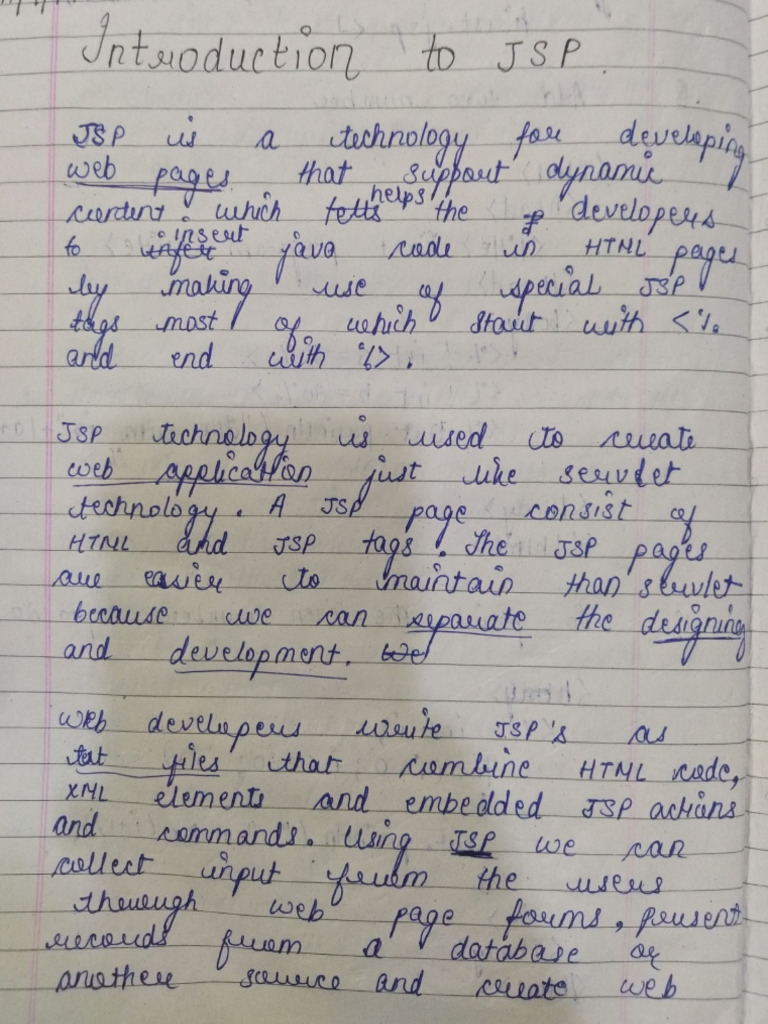 Introduction to JSP.
JSP is a technology for developing
web pages that support dynamic
content. which helps the developers
to insert java code in HTML pages
by making use of special JSP
tags most of which start with <%
and end with %>.
JSP technology is used to create
web application just like servlet
technology. A JSP page consist of
HTML and JSP tags. The JSP pages
are easier to maintain than servlet
because we can separate the designing
and development. We
web developers write JSP's as
text files that combine HTML code,
XML elements and embedded JSP actions
and commands. Using JSP we can
collect input from the users
through web page forms, present
records from a database or
another source and create web